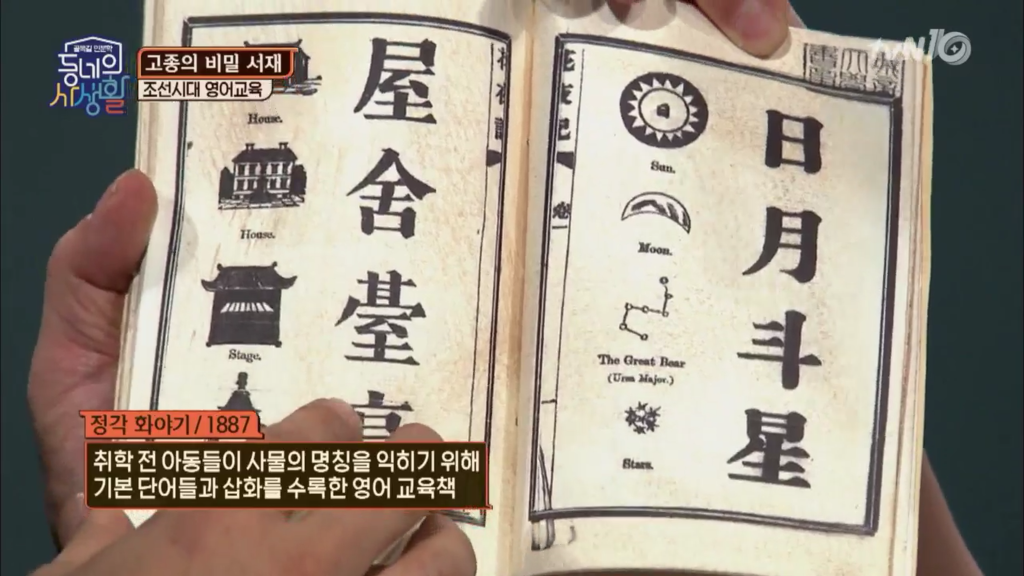 골목길 인문학
동네의
사생활
고종의 비밀 서재
조선시대 영어교육
tvN10
屋
House.
舍
House.
臺
Stage.
日
Sun.
月
Moon.
斗
The Great Bear
(Ursa Major.)
星
Stars.
정각 화야기/1887
취학 전 아동들이 사물의 명칭을 익히기 위해
기본 단어들과 삽화를 수록한 영어 교육책